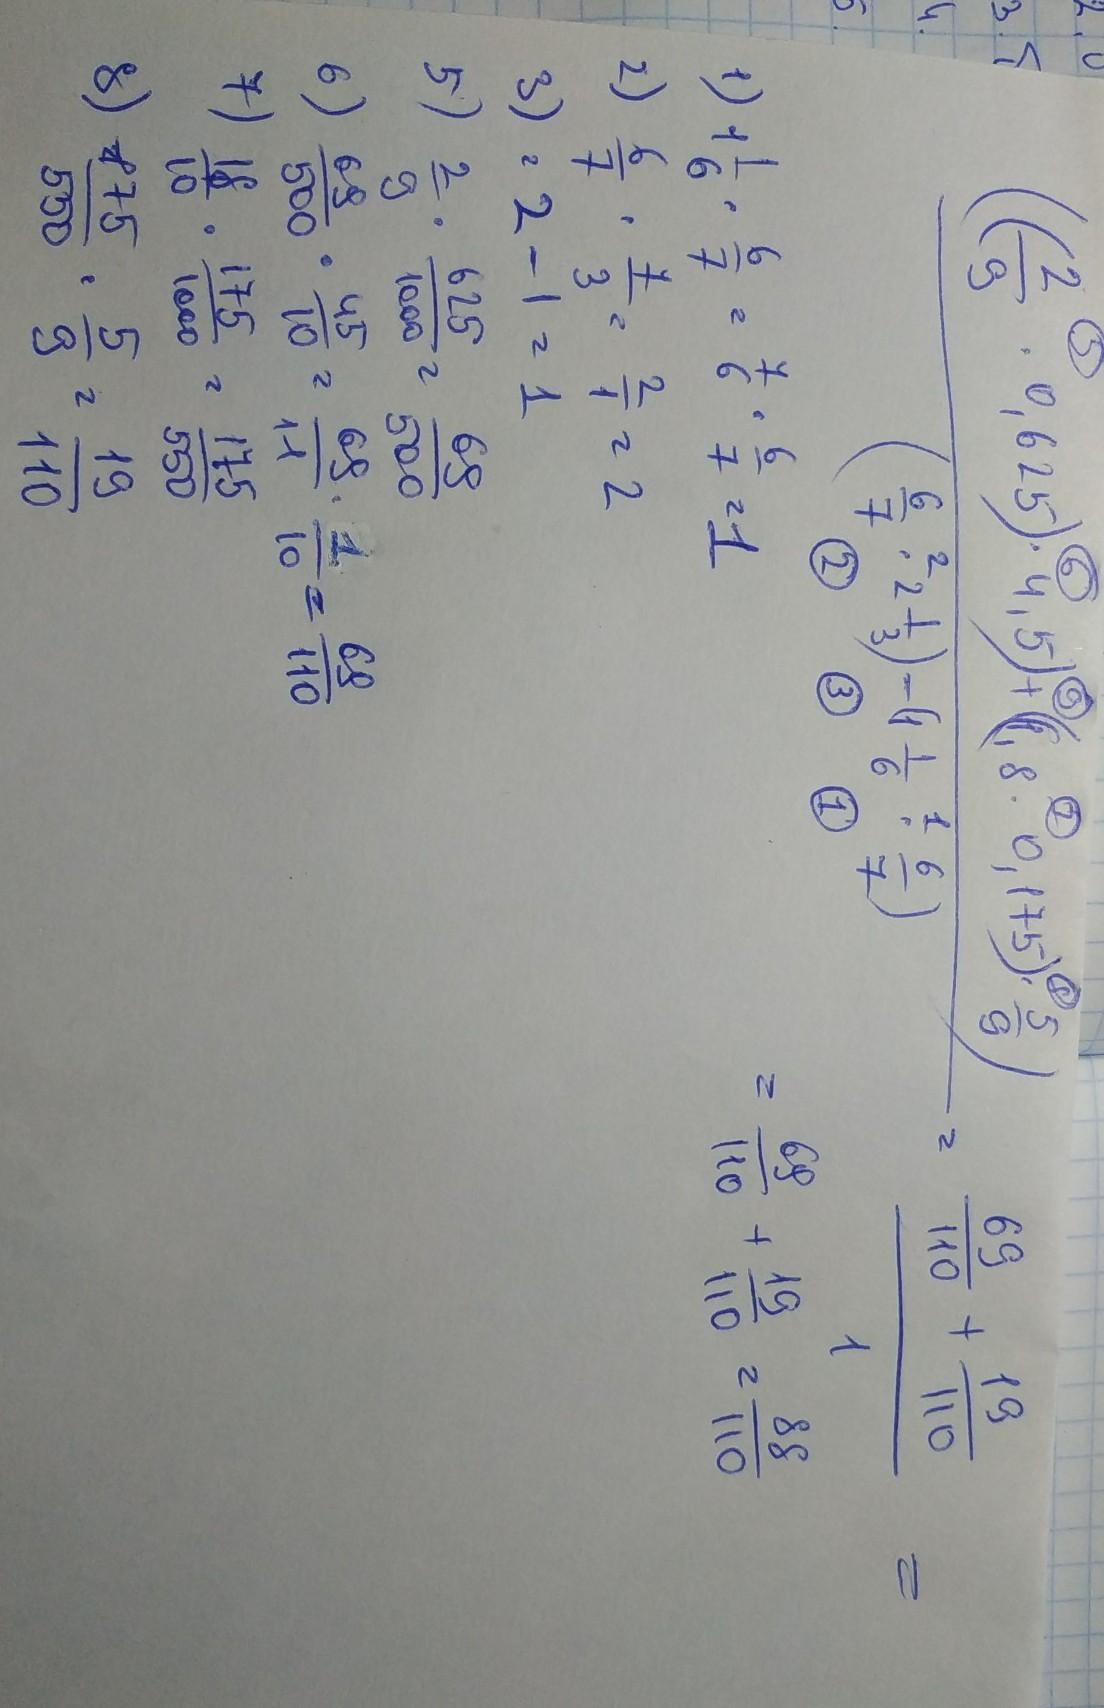 ((2/9 · 0,625) · 4,5) + (1,8 · 0,175) · 5/9) / (6/7 · 2 1/3) - (1 1/6 · 6/7) = (69/110 + 19/110) / 1 =
= 69/110 + 19/110 = 88/110
1) 1 1/6 · 6/7 = 7/6 · 6/7 = 1
2) 6/7 · 7/3 = 2/1 = 2
3) = 2 - 1 = 1
5) 2/9 · 625/1000 = 69/500
6) 69/500 · 45/10 = 69/11 · 1/10 = 69/110
7) 18/10 · 175/1000 = 175/550
8) 175/550 · 5/9 = 19/110